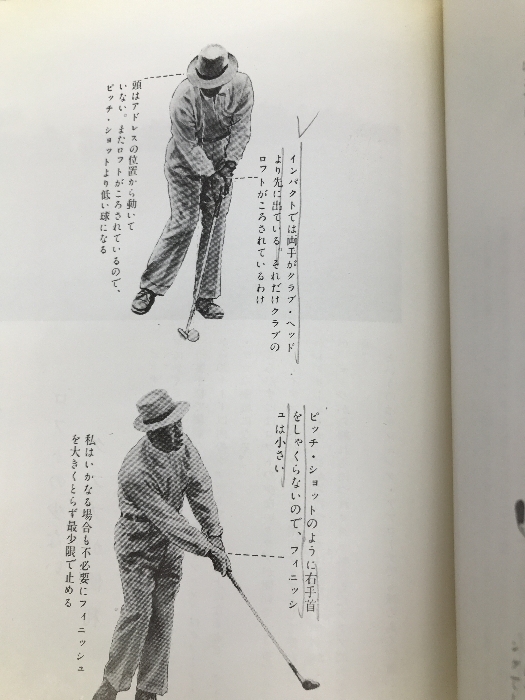 インパクトでは両手がクラブ・ヘッド
より先に出ている。それだけクラブの
ロフトがころされているわけ
頭はアドレスの位置から動いて
いない。またロフトがころされているので、
ピッチ・ショットより低い球になる
ピッチ・ショットのように右手首
をしゃくらないので、フィニッシ
ュは小さい
私はいかなる場合も不必要にフィニッシュ
を大きくとらず最少限で止める